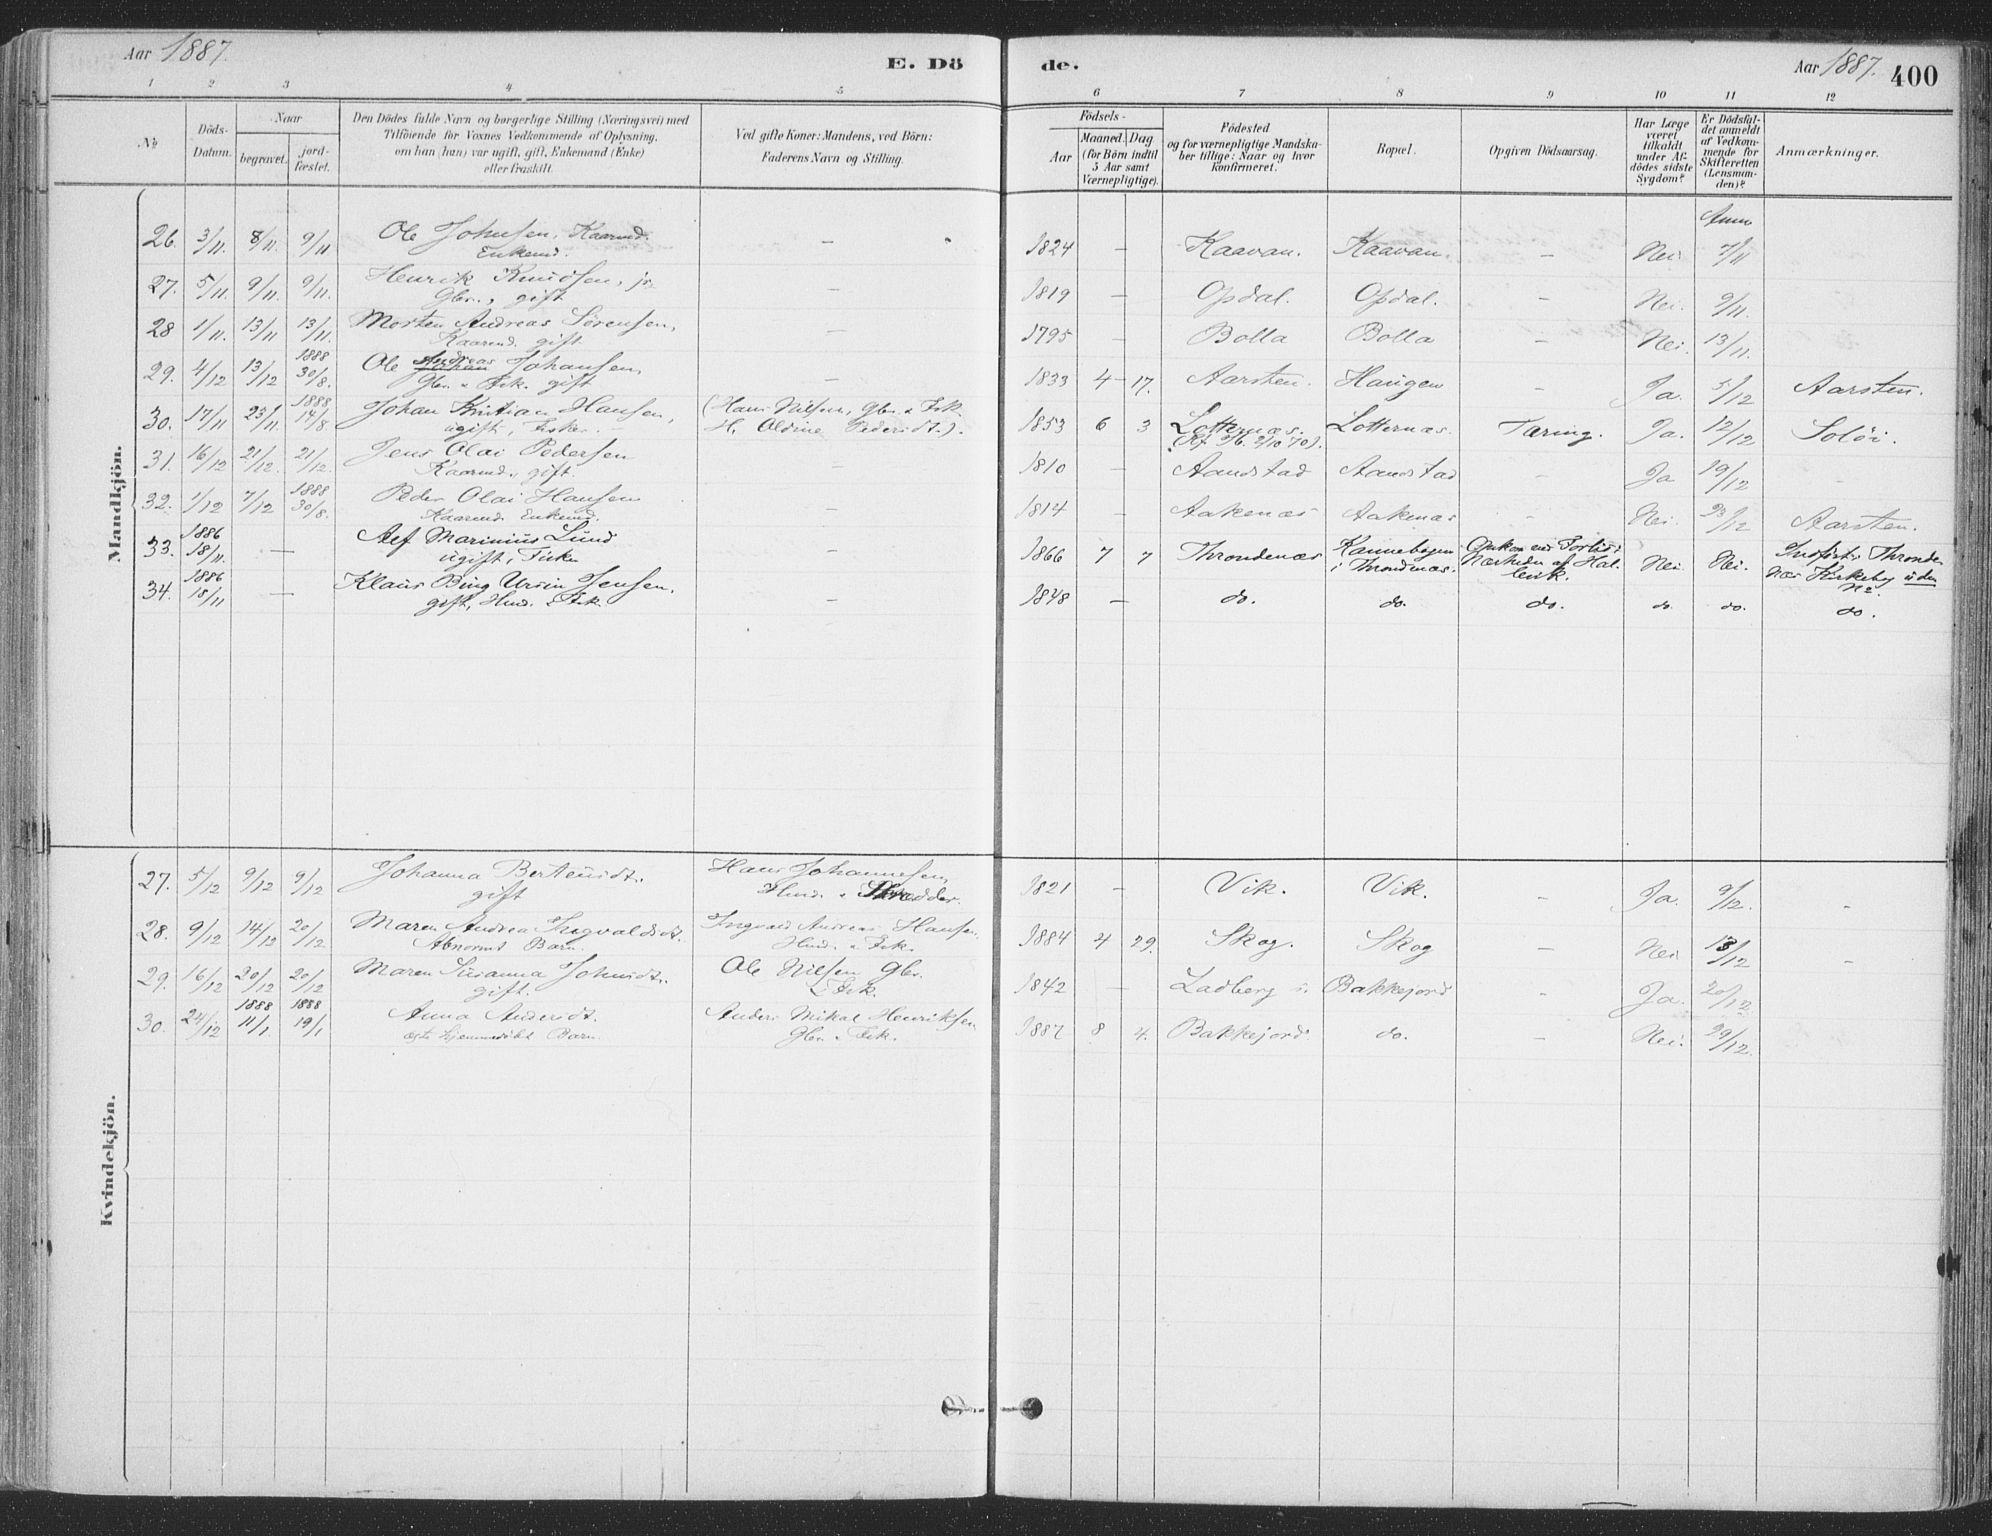 Aar 1887.
E. Dö
de.
Aar 1887.
400
1 2 3 4 5 6 7 8 9 10 11 12
No
Döds-
Datum.
Naar
begravet.
jord-
fæstet.
Den Dödes fulde Navn og borgerlige Stilling (Næringsvei) med
Tilföiende for Voxnes Vedkommende af Oplysning,
om han (hun) var ugift, gift, Enkemand (Enke)
eller fraskilt.
Ved gifte Koner: Mandens, ved Börn:
Faderens Navn og Stilling.
Födsels-
Aar
Maaned.
Dag
(for Börn indtil
5 Aar samt
Værnepligtige).
Födested
og for værnepligtige Mandska-
ber tillige: Naar og hvor
konfirmeret.
Bopæl.
Opgiven Dödsaarsag.
Har Læge
været
tilkaldt
under Af-
dödes sidste
Sygdom?
Er Dödsfal-
det anmeldt
af Vedkom-
mende for
Skifteretten
(Lensman-
den)?
Anmærkninger.
Mandkjön.
Anm
26. 3/11. 8/11. 9/11 Ole Johnsen, Kaarmd. – 1824 – Kaavan. Kaavan. – Nei 7/11
Enkemd.
27. 5/11. 9/11. 9/11. Henrik Knudsen, jr. 1819 – Opdal. Opdal. – Nei. 9/11.
Gbr., gift
28 1/11. 13/11 13/11. Morten Andreas Sörensen, – 1795 – Bolla Bolla – Nei. 13/11.
Kaarmd. gift
29. 4/12 13/12 1888 30/8. Ole Andreas Johansen, – 1833 4 17. Aarsten. Haugen – Ja. 5/12 Aarsten.
Gbr. & Fsk. gift
30. 17/11 23/11. 1888 14/8 Johan Kristian Hansen, (Hans Nilsen, Gbr. & Fsk. 1853 6 3 Lotternæs. Lotternæs. Tæring. Ja. 12/12 Soløi.
ugift, Fisker. – H. Aldine Pedersdt.). (Kf 2/10 70).
31. 16/12 21/12. 21/12. Jens Olai Pedersen 1810 – Aandstad Aandstad – Ja 19/12 –
Kaarmd., gift.
32. 1/12 7/12 1888 30/8. Peder Olai Hansen – 1814 – Aakenæs Aakenæs – Nei. 23/12 Aarsten.
Kaarmd. Enkemd.
33. 1886 18/11. – Alef Marinius Lund – 1866 7 7 Throndenæs Kannebogen Omkom ved Forlis i Nei Nei. Throndе-
ugift, Fisker i Throndenæs. Nærheden af Hal- næs Kirkeby uden
levik. No.
34. 1886 18/11 – Klaus Bing Ursin Jensen. – 1848 – do. do. do. do. do. do.
gift, Hmd. & Fsk.
Kvindekjön.
27. 5/12 9/12 9/12 Johanna Berteusdt. Hans Johannesen, 1821 – Vik. Vik. – Ja. 9/12. –
gift Hmd. & Skrædder.
28. 9/12 14/12 20/12 Maren Andrea Ingvaldsdt. Ingvald Andreas Hansen. 1884 4 29. Skog. Skog – Nei 13/12 –
Abnormt Barn. Hmd. & Fsk.
29. 16/12 20/12 20/12 Maren Susanna Johnsdt., Ole Nilsen Gbr. 1842 – Ladberg Bakkejord – Ja. 20/12
gift. & Fsk.
30. 24/12 1888 11/1. 1888 19/1 Anna Andersdt. Anders Mikal Henriksen 1887 8 4. Bakkejord do. – Nei. 29/12.
ægte hjemmedöbt Barn. Gbr. & Fsk.